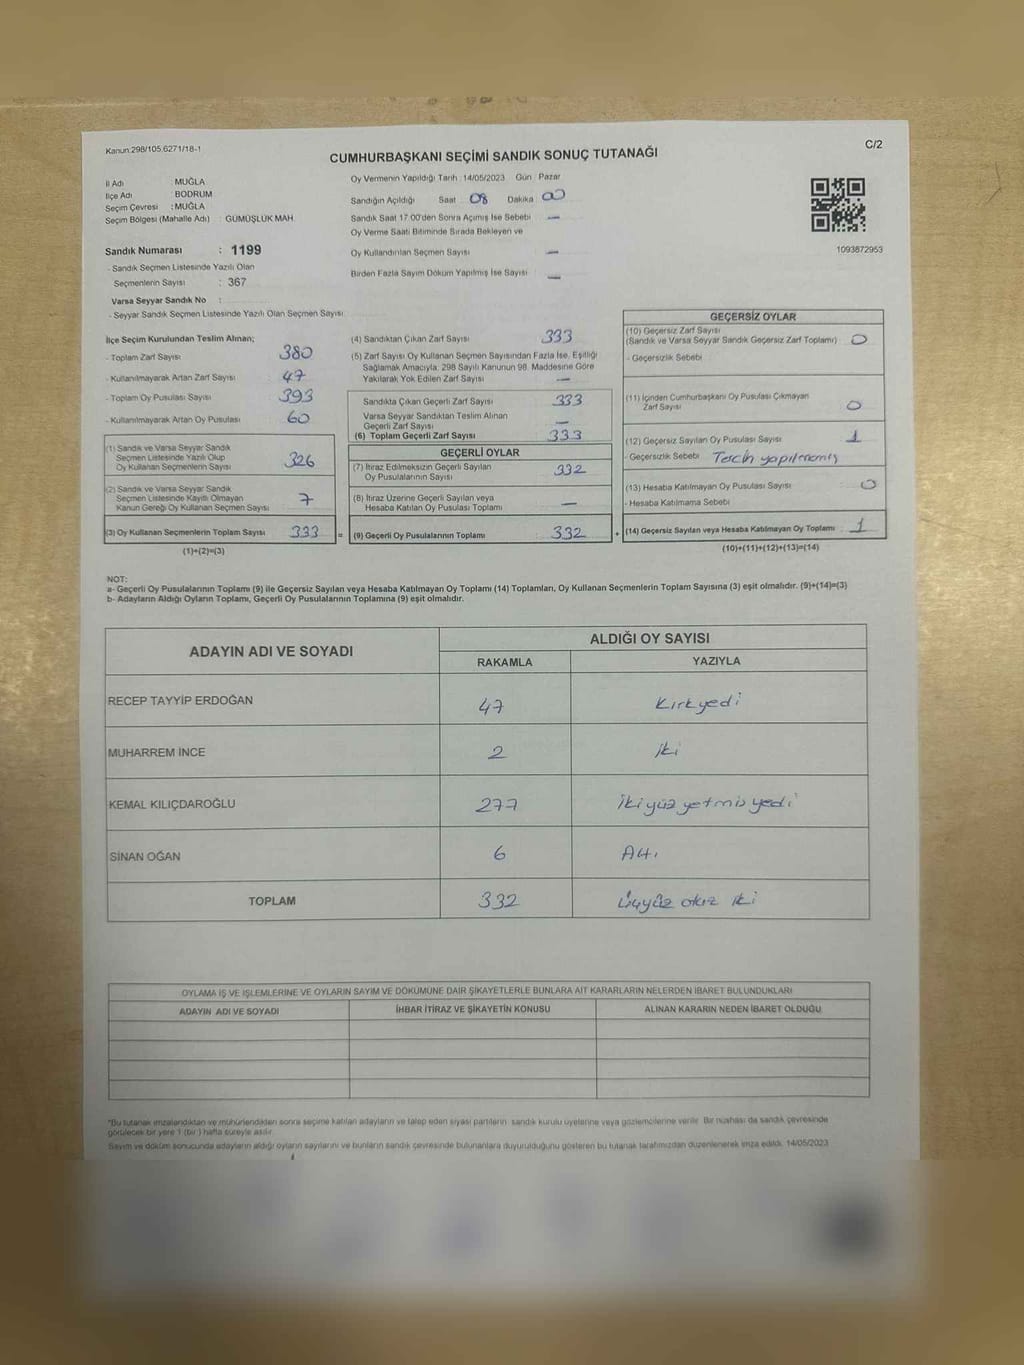 Kanun:298/105,6271/18-1
C/2
CUMHURBAŞKANI SEÇİMİ SANDIK SONUÇ TUTANAĞI
İl Adı : MUĞLA
İlçe Adı : BODRUM
Seçim Çevresi : MUĞLA
Seçim Bölgesi (Mahalle Adı) : GÜMÜŞLÜK MAH.
Sandık Numarası : 1199
- Sandık Seçmen Listesinde Yazılı Olan
Seçmenlerin Sayısı : 367
Varsa Seyyar Sandık No :
- Seyyar Sandık Seçmen Listesinde Yazılı Olan Seçmen Sayısı:
Oy Vermenin Yapıldığı Tarih : 14/05/2023 Gün : Pazar
Sandığın Açıldığı Saat 08 Dakika 00
Sandık Saat 17:00'den Sonra Açılmış İse Sebebi —
Oy Verme Saati Bitiminde Sırada Bekleyen ve
Oy Kullandırılan Seçmen Sayısı —
Birden Fazla Sayım Döküm Yapılmış İse Sayısı —
1093872953
İlçe Seçim Kurulundan Teslim Alınan;
- Toplam Zarf Sayısı 380
- Kullanılmayarak Artan Zarf Sayısı 47
- Toplam Oy Pusulası Sayısı 393
- Kullanılmayarak Artan Oy Pusulası 60
(1) Sandık ve Varsa Seyyar Sandık
Seçmen Listesinde Yazılı Olup
Oy Kullanan Seçmenlerin Sayısı 326
(2) Sandık ve Varsa Seyyar Sandık
Seçmen Listesinde Kayıtlı Olmayan
Kanun Gereği Oy Kullanan Seçmen Sayısı 7
(3) Oy Kullanan Seçmenlerin Toplam Sayısı 333
(1)+(2)=(3)
(4) Sandıktan Çıkan Zarf Sayısı 333
(5) Zarf Sayısı Oy Kullanan Seçmen Sayısından Fazla İse, Eşitliği
Sağlamak Amacıyla, 298 Sayılı Kanunun 98. Maddesine Göre
Yakılarak Yok Edilen Zarf Sayısı —
Sandıkta Çıkan Geçerli Zarf Sayısı 333
Varsa Seyyar Sandıktan Teslim Alınan
Geçerli Zarf Sayısı —
(6) Toplam Geçerli Zarf Sayısı 333
GEÇERLİ OYLAR
(7) İtiraz Edilmeksizin Geçerli Sayılan
Oy Pusulasının Sayısı 332
(8) İtiraz Üzerine Geçerli Sayılan veya
Hesaba Katılan Oy Pusulası Toplamı —
= (9) Geçerli Oy Pusulalarının Toplamı 332
GEÇERSİZ OYLAR
(10) Geçersiz Zarf Sayısı
(Sandık ve Varsa Seyyar Sandık Geçersiz Zarf Toplamı) 0
- Geçersizlik Sebebi
(11) İçinden Cumhurbaşkanı Oy Pusulası Çıkmayan
Zarf Sayısı 0
(12) Geçersiz Sayılan Oy Pusulası Sayısı 1
- Geçersizlik Sebebi Tercih yapılmamış
(13) Hesaba Katılmayan Oy Pusulası Sayısı 0
- Hesaba Katılmama Sebebi
+ (14) Geçersiz Sayılan veya Hesaba Katılmayan Oy Toplamı 1
(10)+(11)+(12)+(13)=(14)
NOT:
a- Geçerli Oy Pusulalarının Toplamı (9) ile Geçersiz Sayılan veya Hesaba Katılmayan Oy Toplamı (14) Toplamları, Oy Kullanan Seçmenlerin Toplam Sayısına (3) eşit olmalıdır. (9)+(14)=(3)
b- Adayların Aldığı Oyların Toplamı, Geçerli Oy Pusulalarının Toplamına (9) eşit olmalıdır.
ADAYIN ADI VE SOYADI
ALDIĞI OY SAYISI
RAKAMLA YAZIYLA
RECEP TAYYİP ERDOĞAN 47 Kırkyedi
MUHARREM İNCE 2 İki
KEMAL KILIÇDAROĞLU 277 İkiyüzyetmişyedi
SİNAN OĞAN 6 Altı
TOPLAM 332 Üçyüz otuz iki
OYLAMA İŞ VE İŞLEMLERİNE VE OYLARIN SAYIM VE DÖKÜMÜNE DAİR ŞİKAYETLERLE BUNLARA AİT KARARLARIN NELERDEN İBARET BULUNDUKLARI
ADAYIN ADI VE SOYADI İHBAR İTİRAZ VE ŞİKAYETİN KONUSU ALINAN KARARIN NEDEN İBARET OLDUĞU
*Bu tutanak imzalandıktan ve mühürlendikten sonra seçime katılan adayların ve talep eden siyasi partilerin sandık kurulu üyelerine veya gözlemcilerine verilir. Bir nüshası da sandık çevresinde
görülecek bir yere 1 (bir) hafta süreyle asılır.
Sayım ve döküm sonucunda adayların aldığı oyların sayılarını ve bunların sandık çevresinde bulunanlara duyurulduğunu gösteren bu tutanak tarafımızdan düzenlenerek imza edildi. 14/05/2023